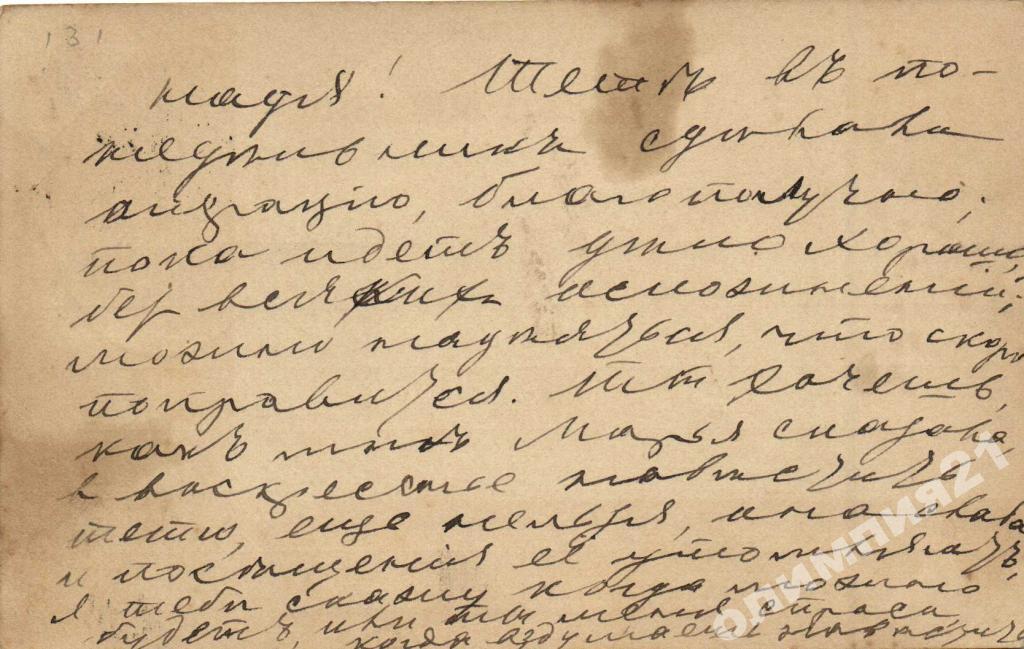 131
Надя! Тетѣ въ по-
недѣльникъ сдѣлали
операцію, благополучно,
пока идетъ дѣло хорошо,
без всякихъ осложненій,
можно надѣяться, что скоро
поправится. Ты хочешь,
какъ мнѣ Марья сказала,
въ воскресенье навѣстить
тетю, еще нельзя, она слаба
и посѣщения её утомляютъ,
я тебѣ скажу когда можно
будетъ, или ты меня спроси,
когда вздумаешь навѣстить
ОЛИМПИЯ21